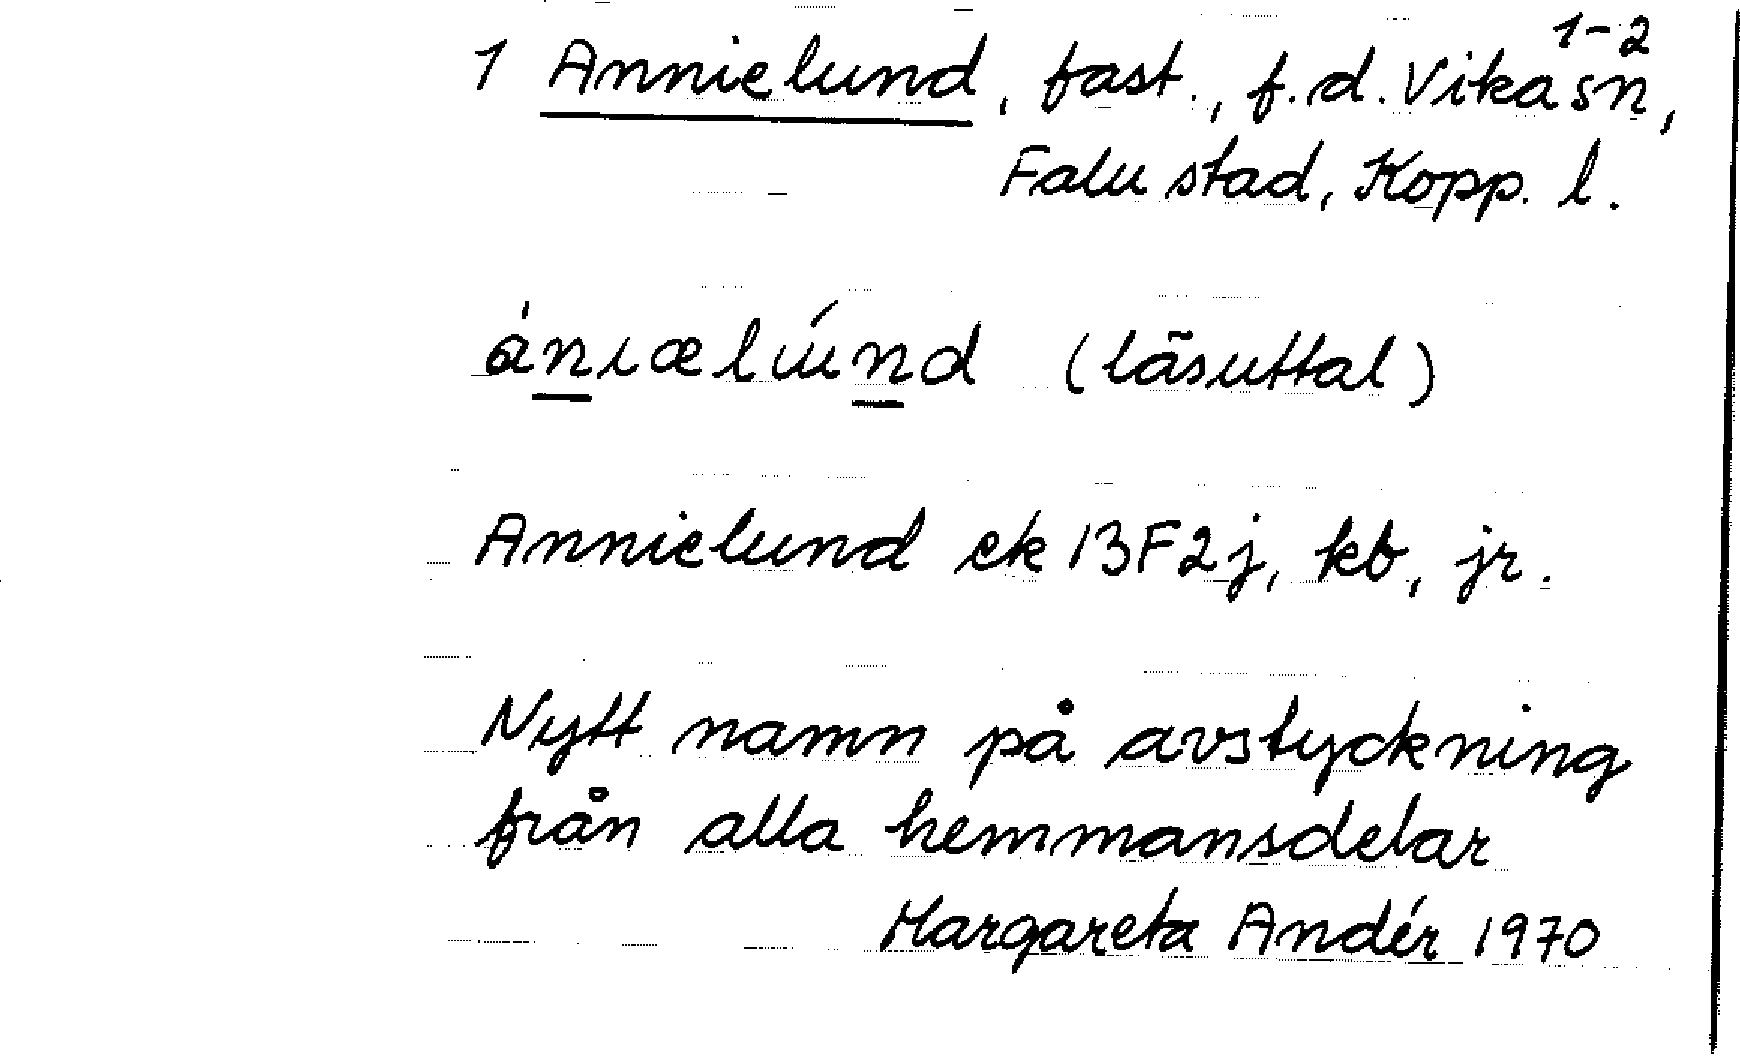 1-2
1 Annielund, fast., f.d. Vika sn,
Falu stad, Kopp. l.
ánıælúnd (läsuttal)
Annielund ek 13F2j, kb, jr.
Nytt namn på avstyckning
från alla hemmansdelar
Margareta Andér 1970